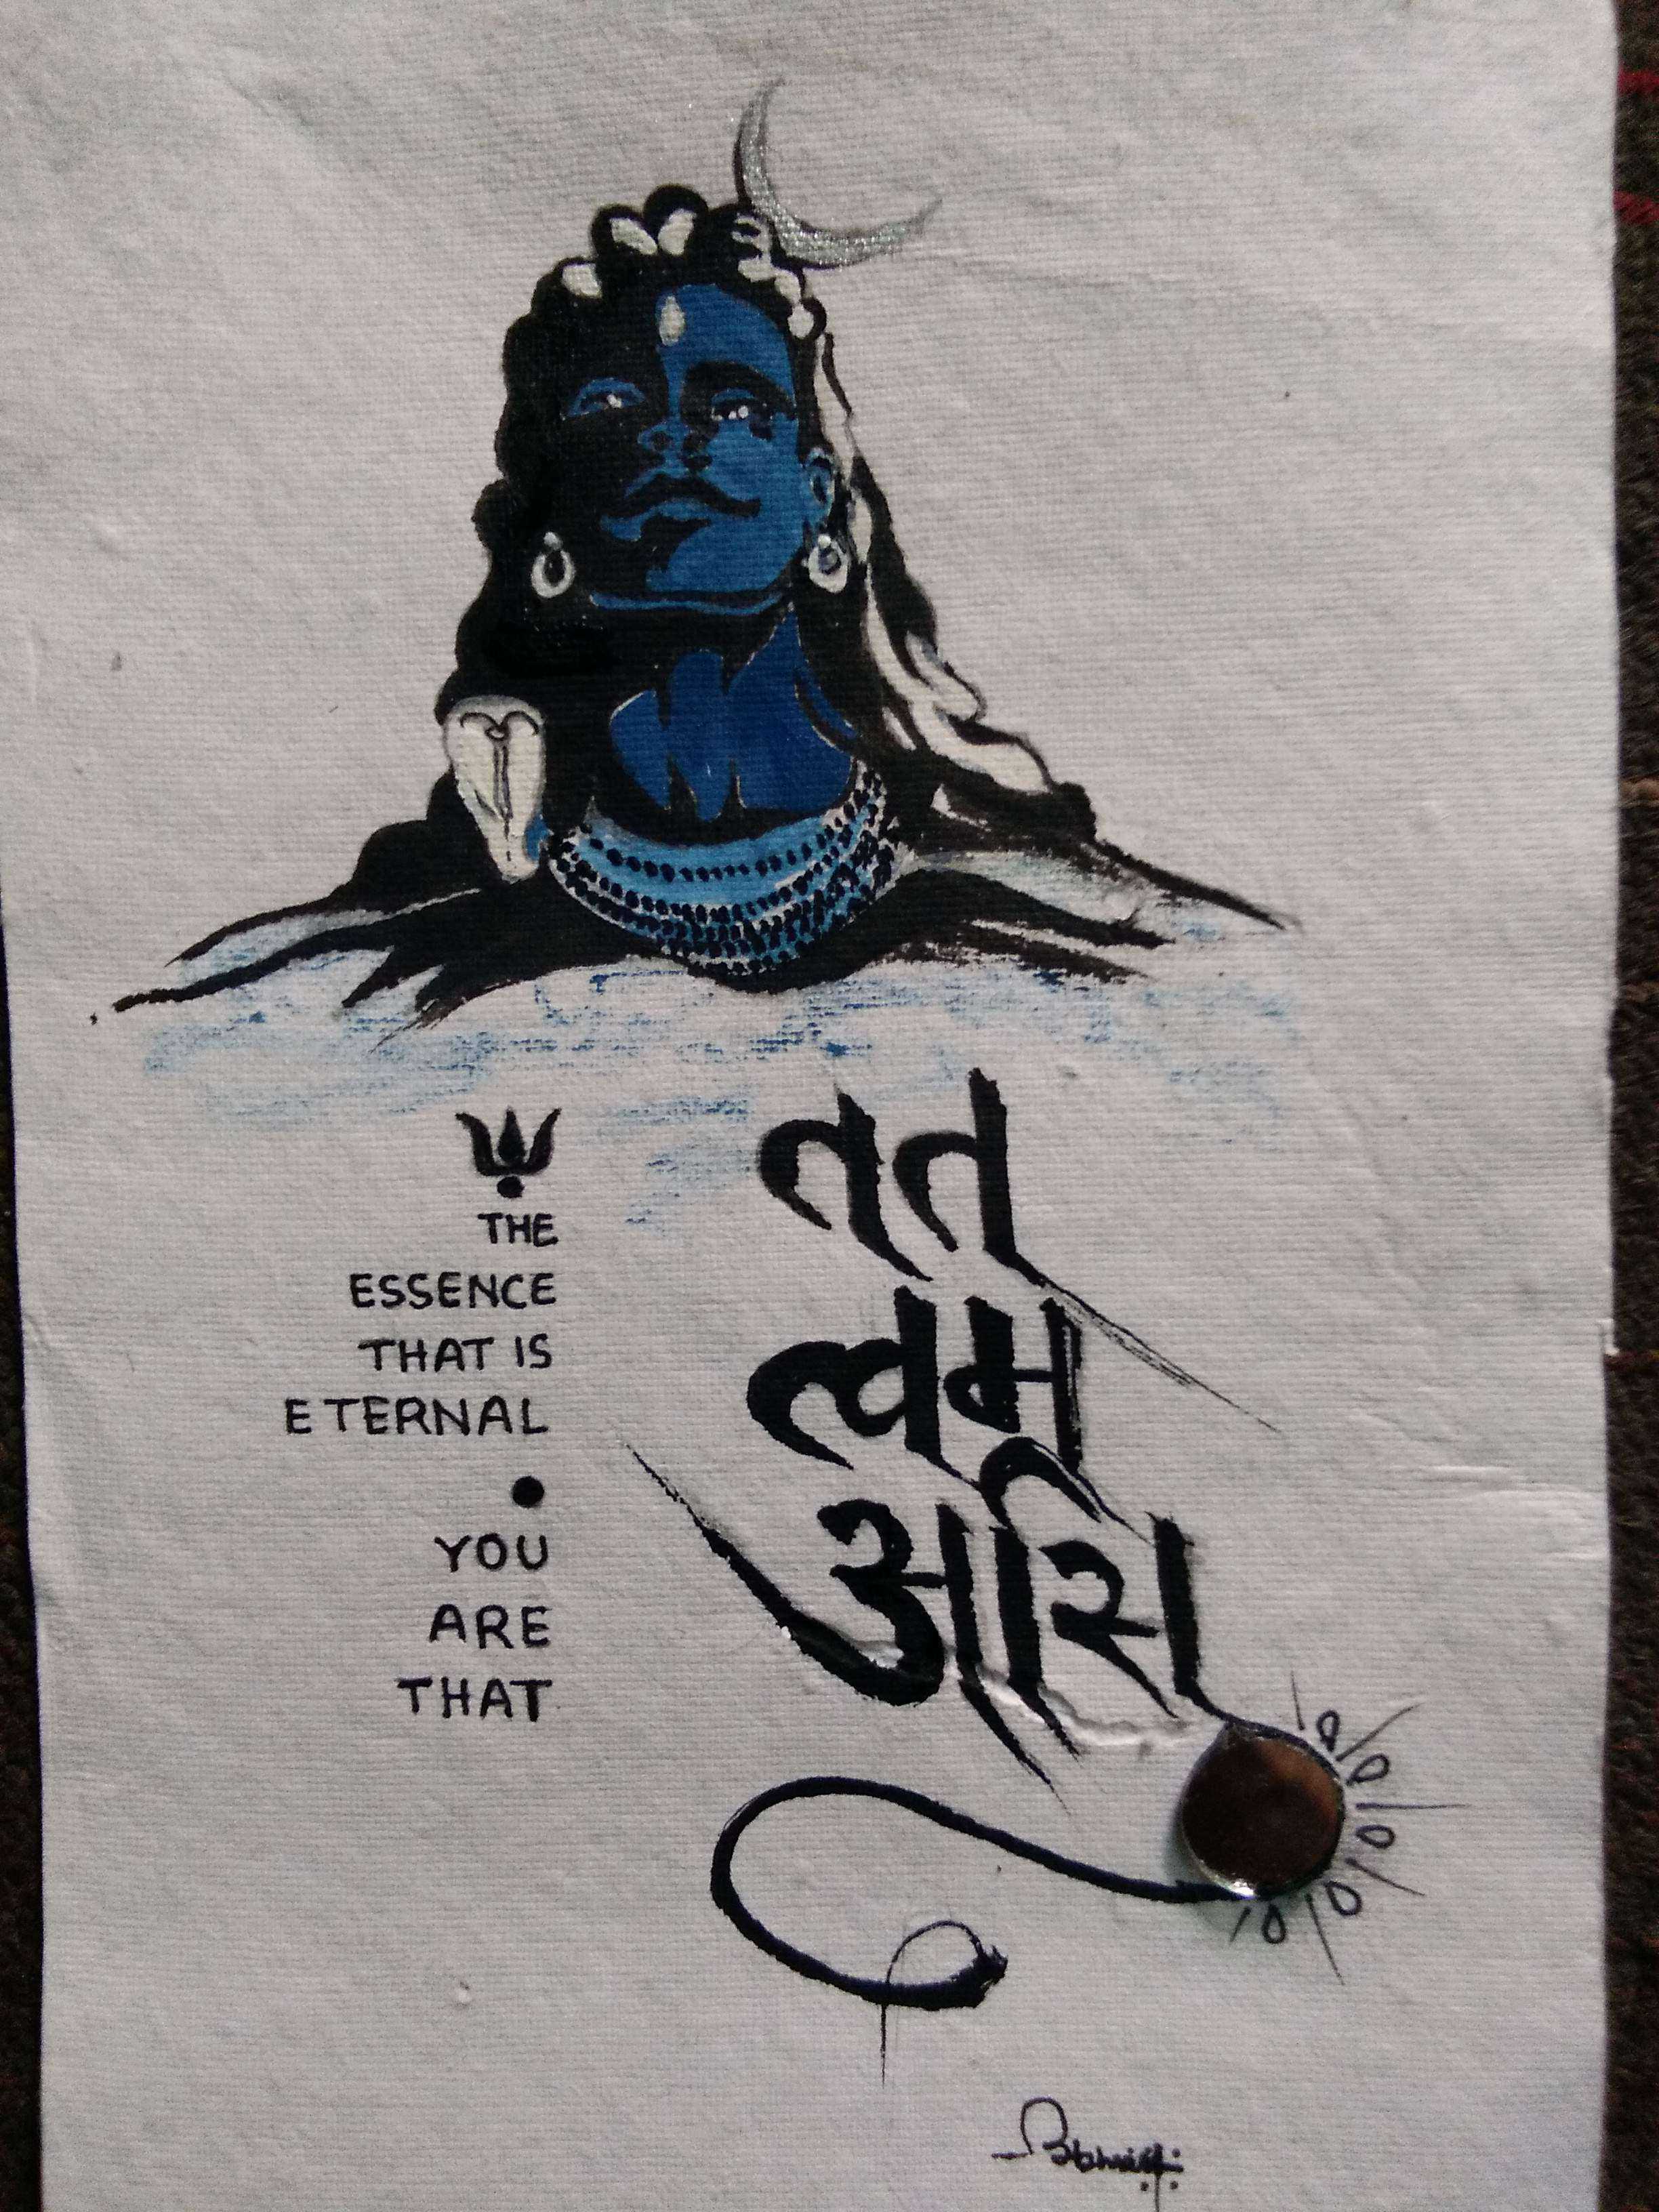 THE
ESSENCE
THAT IS
ETERNAL
•
YOU
ARE
THAT
तत
त्वम
असि